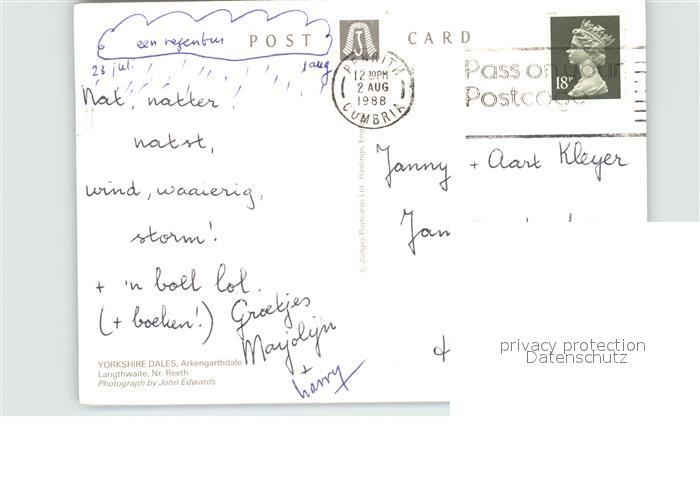 een regenbui
23 jul.
1 aug
POST CARD
PENRITH
12 30PM
2 AUG
1988
CUMBRIA
Pass on your
Postcode
18P
Nat, natter
natst,
wind, waaierig,
storm!
+ 'n boel lol.
(+ boeken!) Groetjes
Marjolijn
+
Harry
Janny + Aart Kleyer
Jan
© Judges Postcards Ltd. Hastings, Eng
YORKSHIRE DALES, Arkengarthdale
Langthwaite, Nr. Reeth.
Photograph by John Edwards
privacy protection
Datenschutz